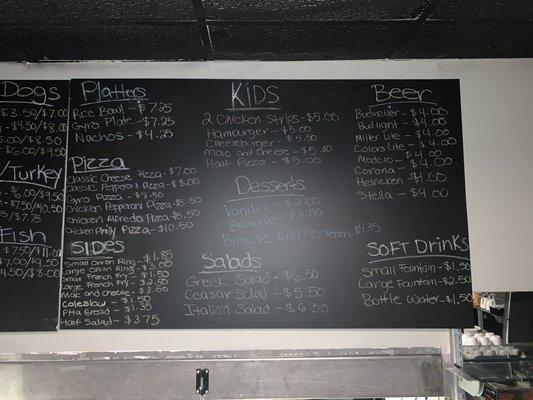 Dogs
$8.50/$7.00
$4.50/$8.00
$5.00/$8.00
$6.00/$9.50
/Turkey
$6.00/$9.50
$7.50/$10.50
$7.75
Fish
$7.50/$11.00
$4.50/$8.00
Platters
Rice Bowl - $7.25
Gyro Plate - $7.25
Nachos - $4.25
Pizza
Classic Cheese Pizza - $7.00
Classic Pepperoni Pizza - $8.00
Gyro Pizza - $8.50
Chicken Pepperoni Pizza $8.50
Chicken Alfredo Pizza $8.50
Chicken Philly Pizza - $10.50
SIDES
Small Onion Ring - $1.85
Large Onion Ring - $3.00
Small French Fry - $1.50
Large French Fry - $2.50
Mac and Cheese - $3.50
Coleslow - $1.50
Pita Bread - $1.35
Half Salad - $3.75
KIDS
2 Chicken Strips - $5.00
Hamburger - $5.00
Cheeseburger - $5.50
Mac and Cheese - $5.00
Half Pizza - $5.00
Desserts
Vanilla - $2.00
Brownie - $2.50
Brownie with Ice-cream - $4.35
Salads
Greek Salad - $6.50
Ceasar Salad - $5.50
Italian Salad - $6.50
Beer
Budweiser - $4.00
Bud light - $4.00
Miller Lite - $4.00
Colors Lite - $4.00
Modelo - $4.00
Corona - $4.00
Heineken - $4.00
Stella - $4.00
SOFT DRINKS
Small Fountain - $1.50
Large Fountain - $2.50
Bottle Water - $1.50